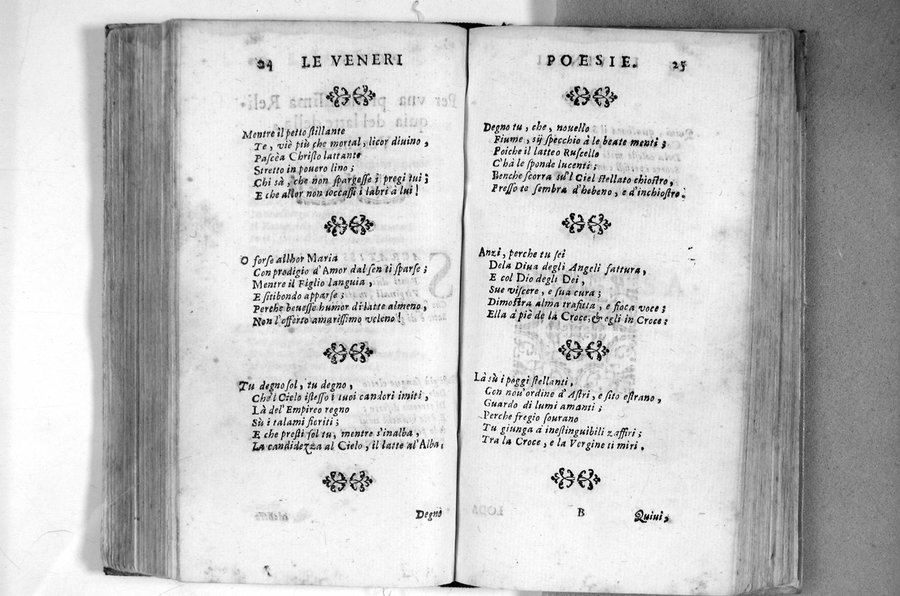 24 LE VENERI
Mentre il petto stillante
Te, viè più che mortal, licor diuino,
Pascèa Christo lattante
Stretto in pouero lino;
Chi sà, che non spargesse i pregi tui;
E che allor non toccassi i labri à lui!
O forse allhor Maria
Con prodigio d'Amor dal sen ti sparse;
Mentre il Figlio languia,
E sitibondo apparse;
Perche beuesse humor di latte almeno,
Non l'offerto amarissimo veleno!
Tu degno sol, tu degno,
Che'l Cielo istesso i tuoi candori imiti,
Là del'Empireo regno
Sù i talami fioriti;
E che presti sol tu, mentre s'inalba,
La candidezza al Cielo, il latte al'Alba,
Degno
POESIE. 25
Degno tu, che, nouello
Fiume, sij specchio à le beate menti;
Poiche il latteo Ruscello
C'hà le sponde lucenti;
Benche scorra sù'l Ciel stellato chiostro,
Presso te sembra d'hebeno, e d'inchiostro.
Anzi, perche tu sei
Dela Diua degli Angeli fattura,
E col Dio degli Dei,
Sue viscere, e sua cura;
Dimostra alma trafitta, e fioca voce;
Ella à piè de la Croce, & egli in Croce;
Là sù i poggi stellanti,
Con nou'ordine d'Astri, e sito estrano,
Guardo di lumi amanti;
Perche fregio sourano
Tu giunga à inestinguibili zaffiri;
Tra la Croce, e la Vergine ti miri.
B
Quiui,